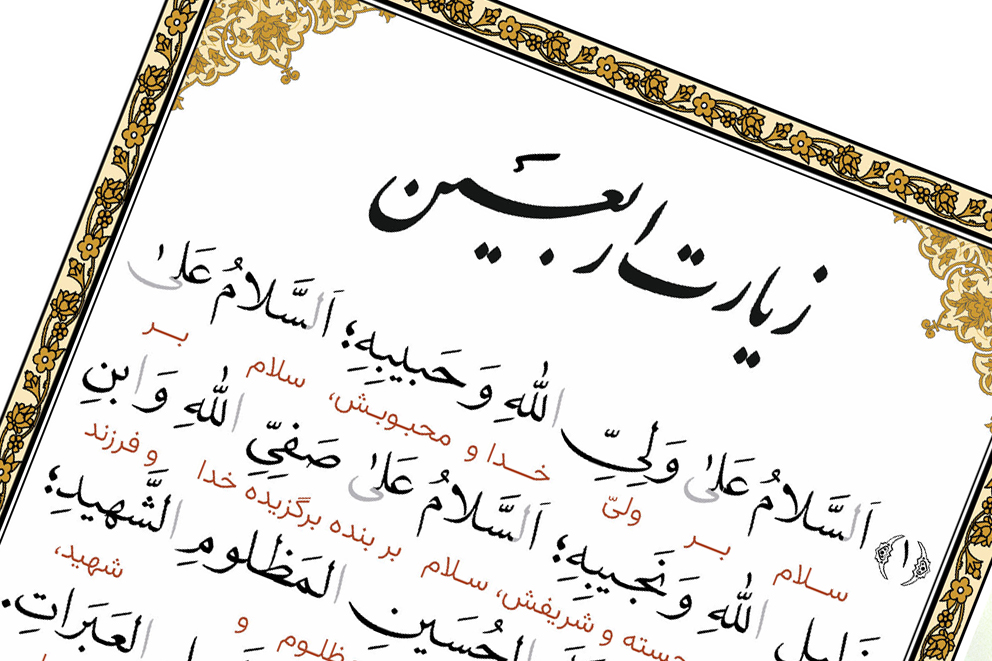 زیارت اربعین
﴿۱﴾ اَلسَّلامُ عَلیٰ وَلِیِّ اللهِ وَ حَبیبِهِ؛ اَلسَّلامُ عَلیٰ
سلام بر ولیّ خدا و محبوبش، سلام بر
خَلیلِ اللهِ وَ نَجیبِهِ؛ اَلسَّلامُ عَلیٰ صَفِیِّ اللهِ وَ ابنِ
و شریفش، سلام بر بنده برگزیده خدا و فرزند
الحُسَینِ المَظلومِ الشَّهیدِ؛
مظلوم و شهید،
العَبَراتِ.